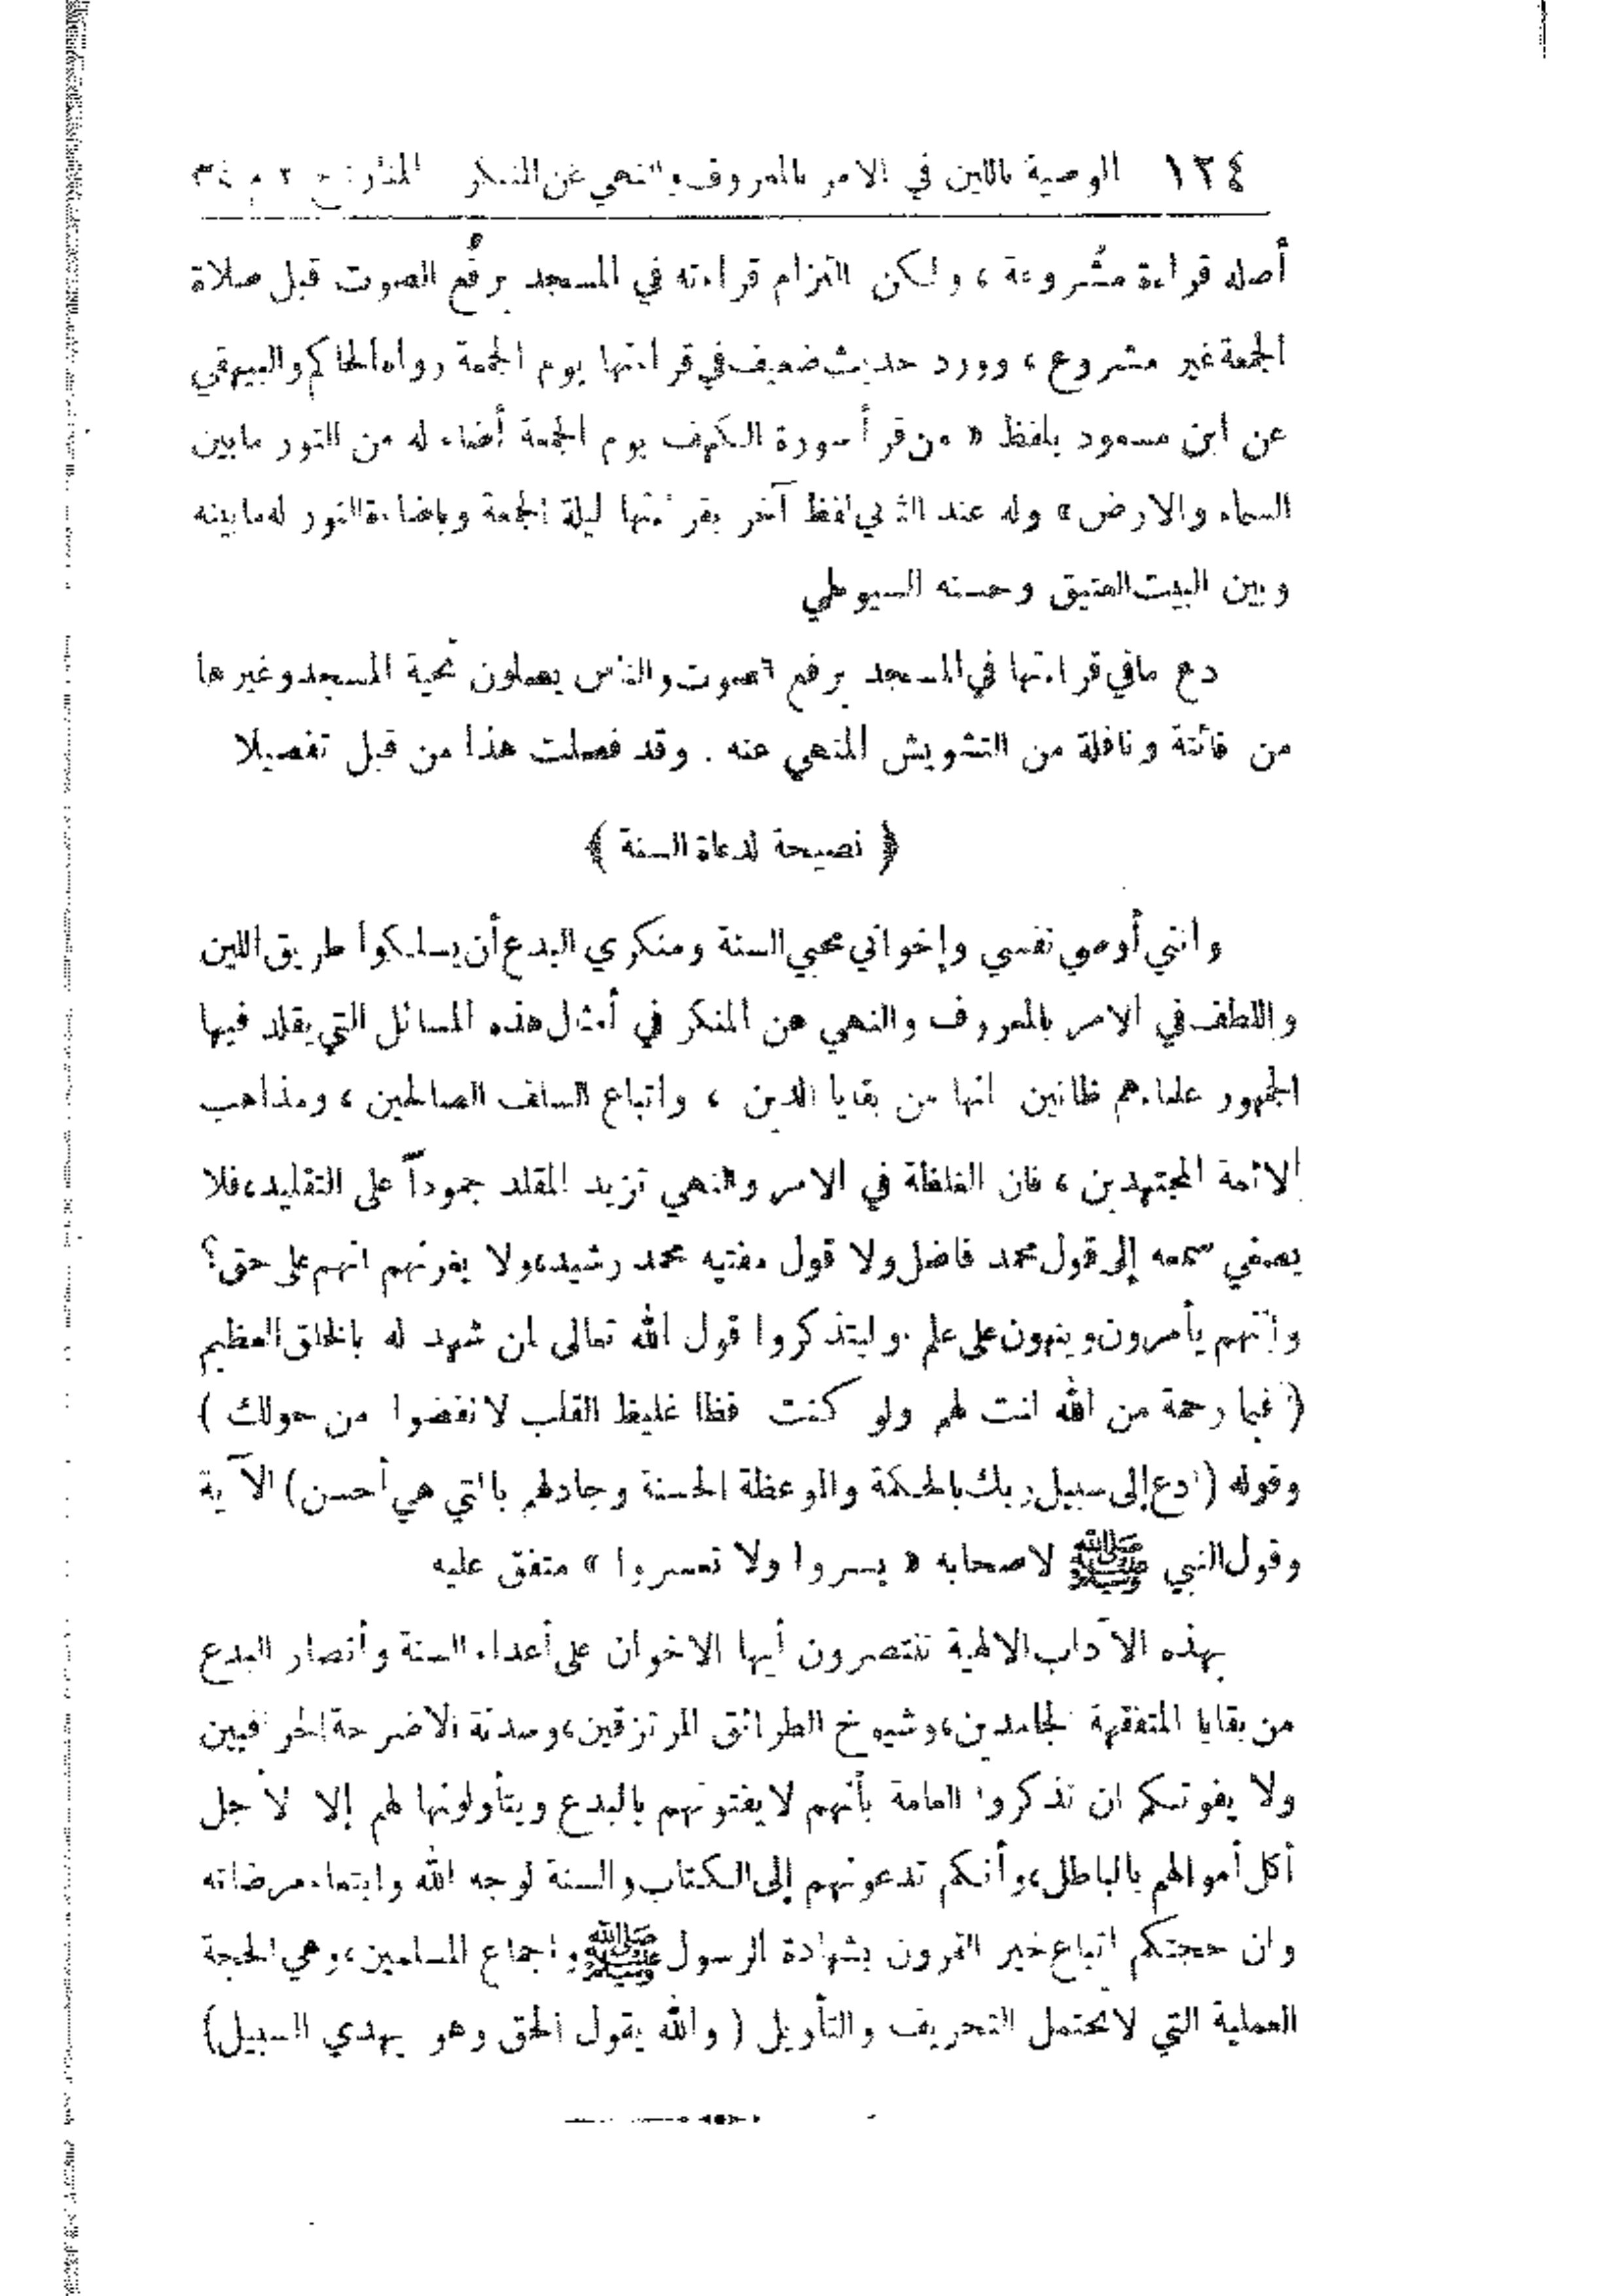 ١٢٤ الوصية باللين في الامر بالمعروف والنهي عن المنكر المنار: ج ٢ م ٣٤
أصله قراءة مشروعة ، ولكن التزام قراءته في المسجد برفع الصوت قبل صلاة
الجمعة غير مشروع ، وورد حديث ضعيف في قراءتها يوم الجمعة رواه الحاكم والبيهقي
عن ابن مسعود بلفظ « من قرأ سورة الكهف يوم الجمعة أضاء له من النور مابين
السماء والارض » وله عند الثاني لفظ آخر بقراءتها ليلة الجمعة وباضاءة النور له مابينه
وبين البيت العتيق وحسنه السيوطي
دع مافي قراءتها في المسجد برفع الصوت والناس يصلون تحية المسجد وغيرها
من فائتة ونافلة من التشويش المنهي عنه . وقد فصلت هذا من قبل تفصيلا
﴿ نصيحة لدعاة السنة ﴾
وانني أوصي نفسي وإخواني محبي السنة ومنكري البدع أن يسلكوا طريق اللين
واللطف في الامر بالمعروف والنهي عن المنكر في أمثال هذه المسائل التي يقلد فيها
الجمهور علماءهم ظانين انها من بقايا الدين ، واتباع السلف الصالحين ، ومذاهب
الائمة المجتهدين ، فان الغلظة في الامر والنهي تزيد المقلد جموداً على التقليد، فلا
يصغي سمعه إلى قول محمد فاضل ولا قول مفتيه محمد رشيد، ولا يغرنهم انهم على حق؟
وانهم يأمرون وينهون على علم . وليتذكروا قول الله تعالى لمن شهد له بالخلق العظيم
( فبما رحمة من الله لنت لهم ولو كنت فظا غليظ القلب لانفضوا من حولك )
وقوله ( ادع إلى سبيل ربك بالحكمة والموعظة الحسنة وجادلهم بالتي هي أحسن ) الآية
وقول النبي ﷺ لاصحابه « يسروا ولا تعسروا » متفق عليه
بهذه الآداب الالهية تنتصرون أيها الاخوان على أعداء السنة وأنصار البدع
من بقايا المتفقهة الجامدين، وشيوخ الطرائق المرتزقين، وسدنة الاضرحة الخرافيين
ولا يفوتنكم ان تذكروا العامة بأنهم لا يفتونهم بالبدع ويتأولونها لهم إلا لأجل
أكل أموالهم بالباطل، وأنكم تدعونهم إلى الكتاب والسنة لوجه الله وابتغاء مرضاته
وان حجتكم اتباع خير القرون بشهادة الرسول ﷺ واجماع المسلمين، وهي الحجة
العملية التي لاتحتمل التحريف والتأويل ( والله يقول الحق وهو يهدي السبيل )